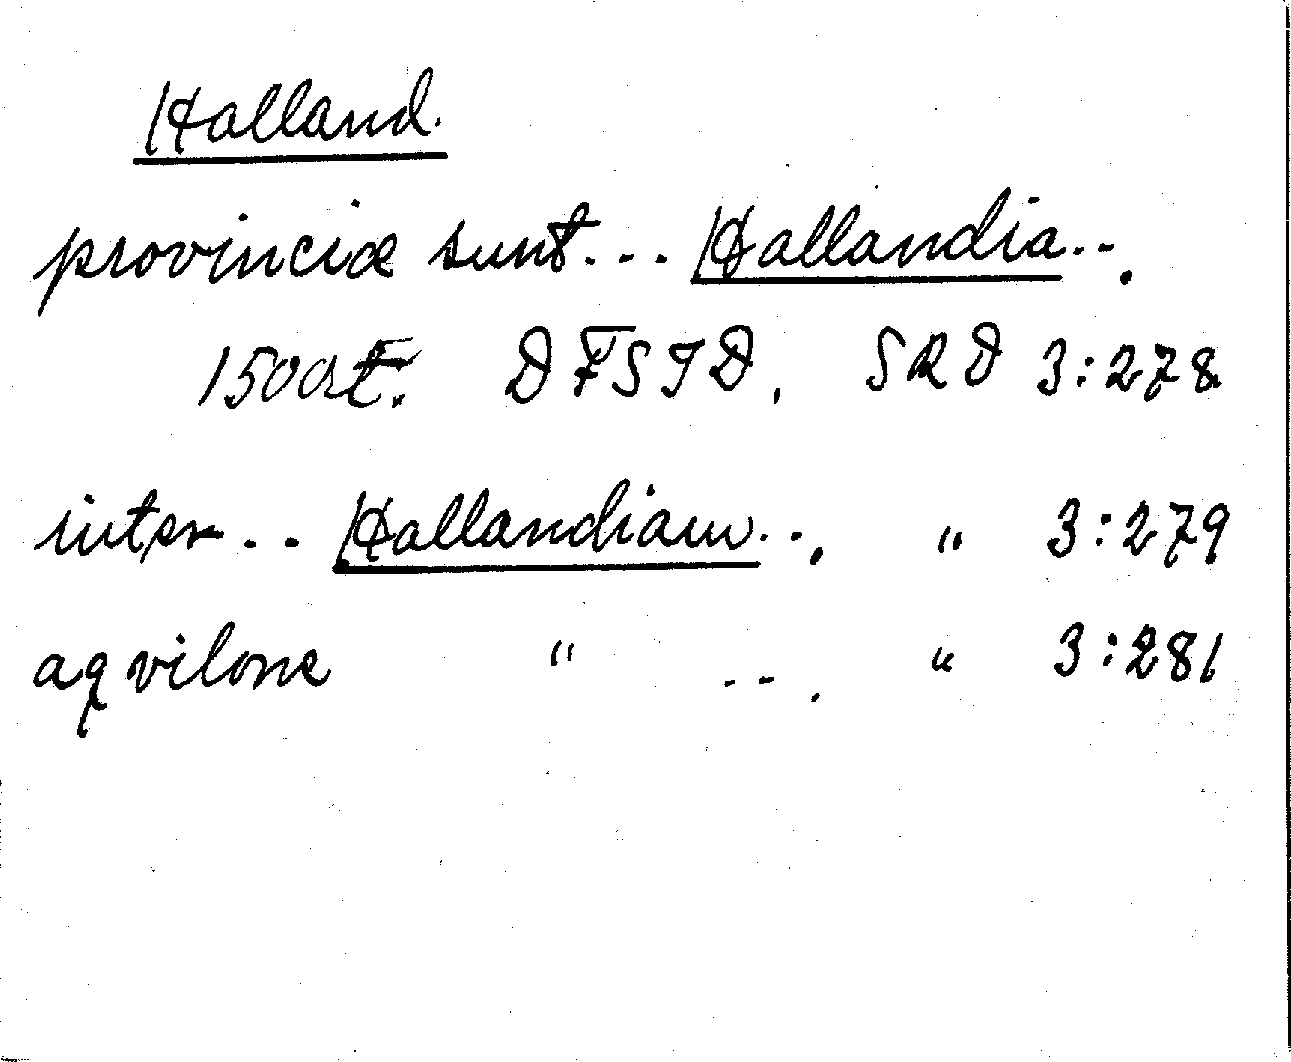 Halland.
provinciæ sunt... Hallandia...
1500t. DFSTD, SRD 3:278
inter .. Hallandiam .., " 3:279
aqvilone " --. " 3:281